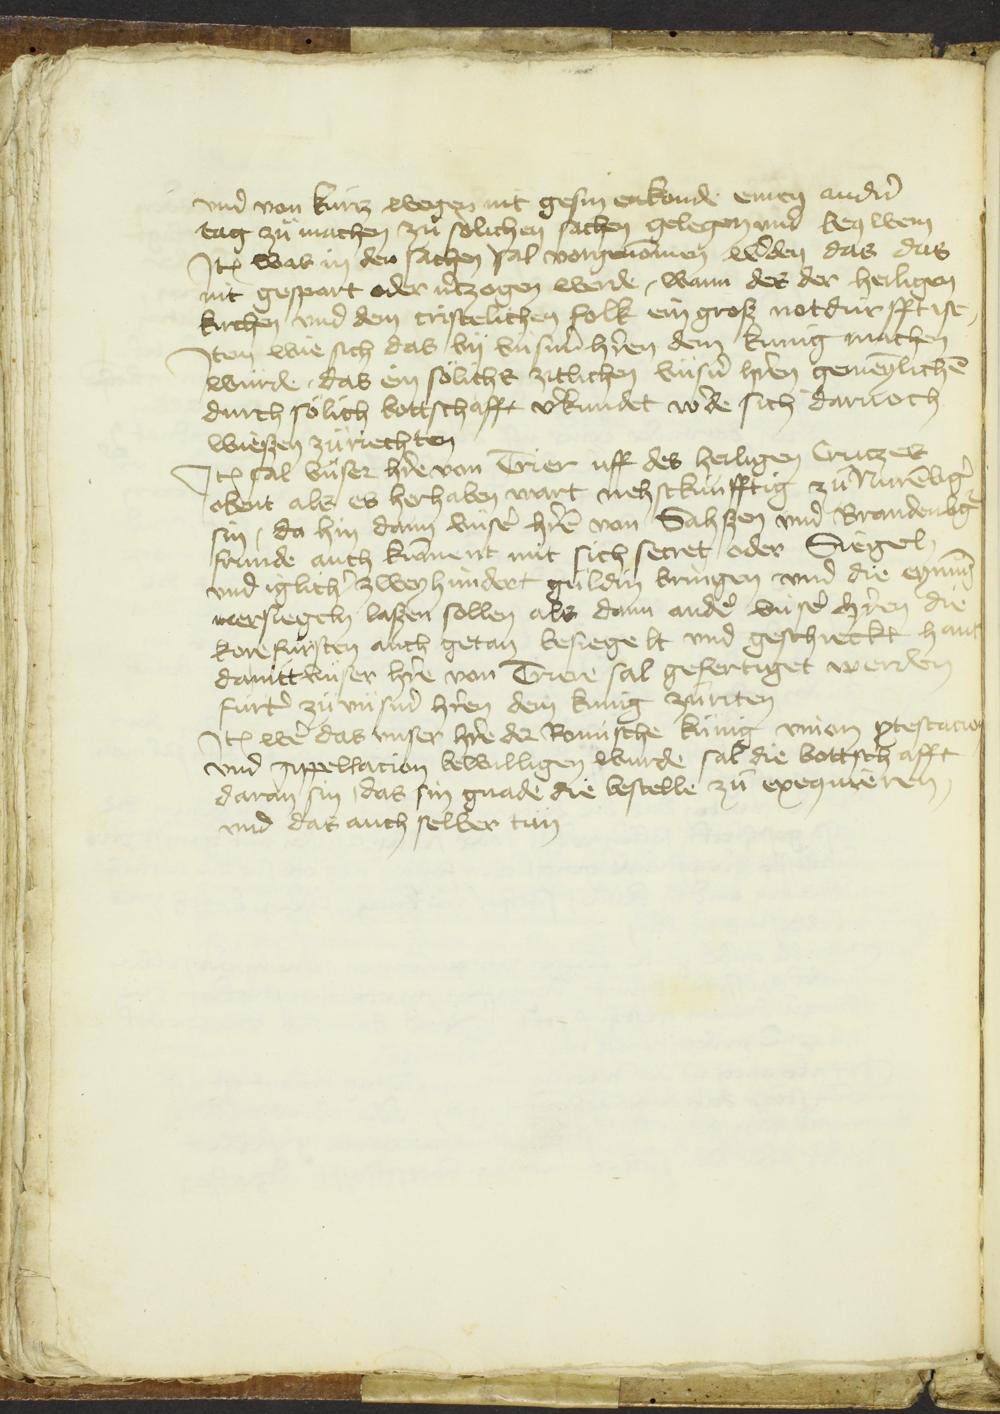 vnd von kurtz wegen nit gesin enkonde einen andern
tag zů machen zů solichen sachen gelegen vnd beqwem
Jtem was in den sachen sal vorgenomen werden das das
nit gespart oder vertzogen werde, wann des der heiligen
kirchen vnd dem cristelichen folk ein groß notdurfft ist,
Jtem wie sich das by vnserm herren dem kunig machen
wurde, das ein solichs zitlichen vnsern herren gemeynlichen
durch solich bottschafft verkundet werde sich darnoch
wießen zů riechten
Jtem sal vnser herre von Trier uff des heiligen Crutzes
obent als es herhaben wart nehstkunfftig zů Nurenberg
sin, da hin dann vnser herren von Sahßen vnd Brandenburg
frunde auch komment mit sich secret oder Siegel
vnd iglicher zweyhundert guldin bringen vnd die eynung
versiegeln laßen sollen als dann ander vnser herren die
korefursten auch getan besiegelt vnd geschickt hant
damitt vnser herre von Triere sal gefertiget werden
furter zů vnserm herren dem kunig zu riten
Jtem wer das vnser herre der Romische kunig vnion protestacion
vnd appellacion bewilligen wurde sal die bottschafft
daran sin, das sin gnade die bestelle zů exequieren,
vnd das auch selber tun